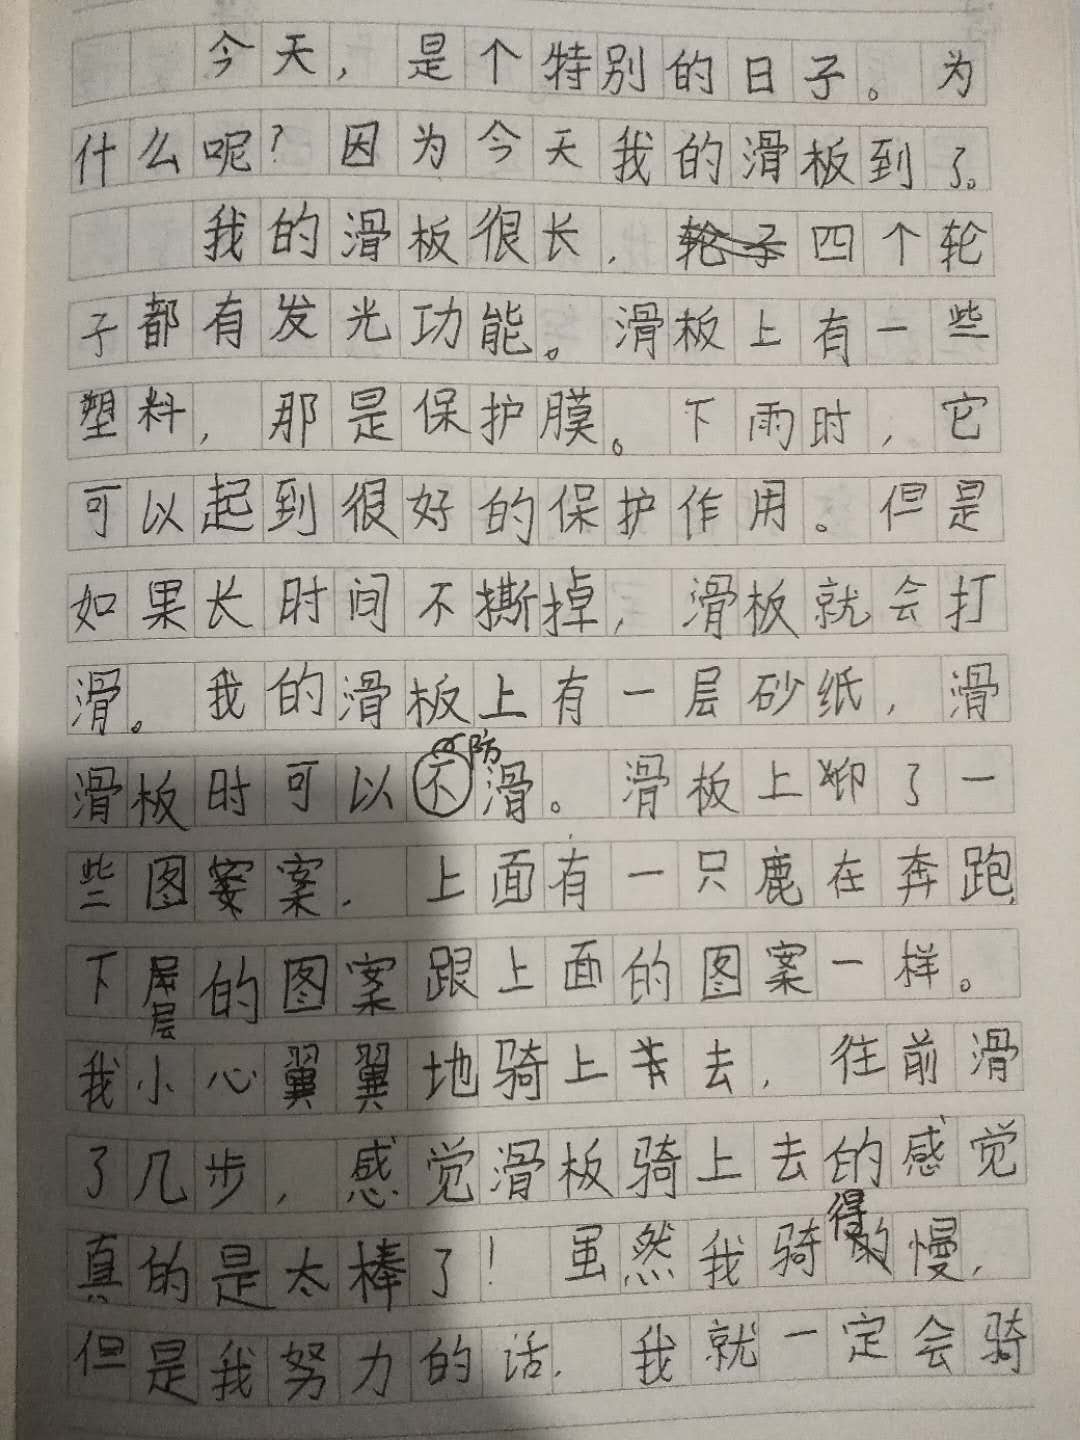 今天，是个特别的日子。为
什么呢？因为今天我的滑板到了。
我的滑板很长，四个轮
子都有发光功能。滑板上有一些
塑料，那是保护膜。下雨时，它
可以起到很好的保护作用。但是
如果长时间不撕掉，滑板就会打
滑。我的滑板上有一层砂纸，滑
滑板时可以防滑。滑板上印了一
些图案，上面有一只鹿在奔跑，
下层的图案跟上面的图案一样。
我小心翼翼地骑上去，往前滑
了几步，感觉滑板骑上去的感觉
真的是太棒了！虽然我骑得慢，
但是我努力的话，我就一定会骑